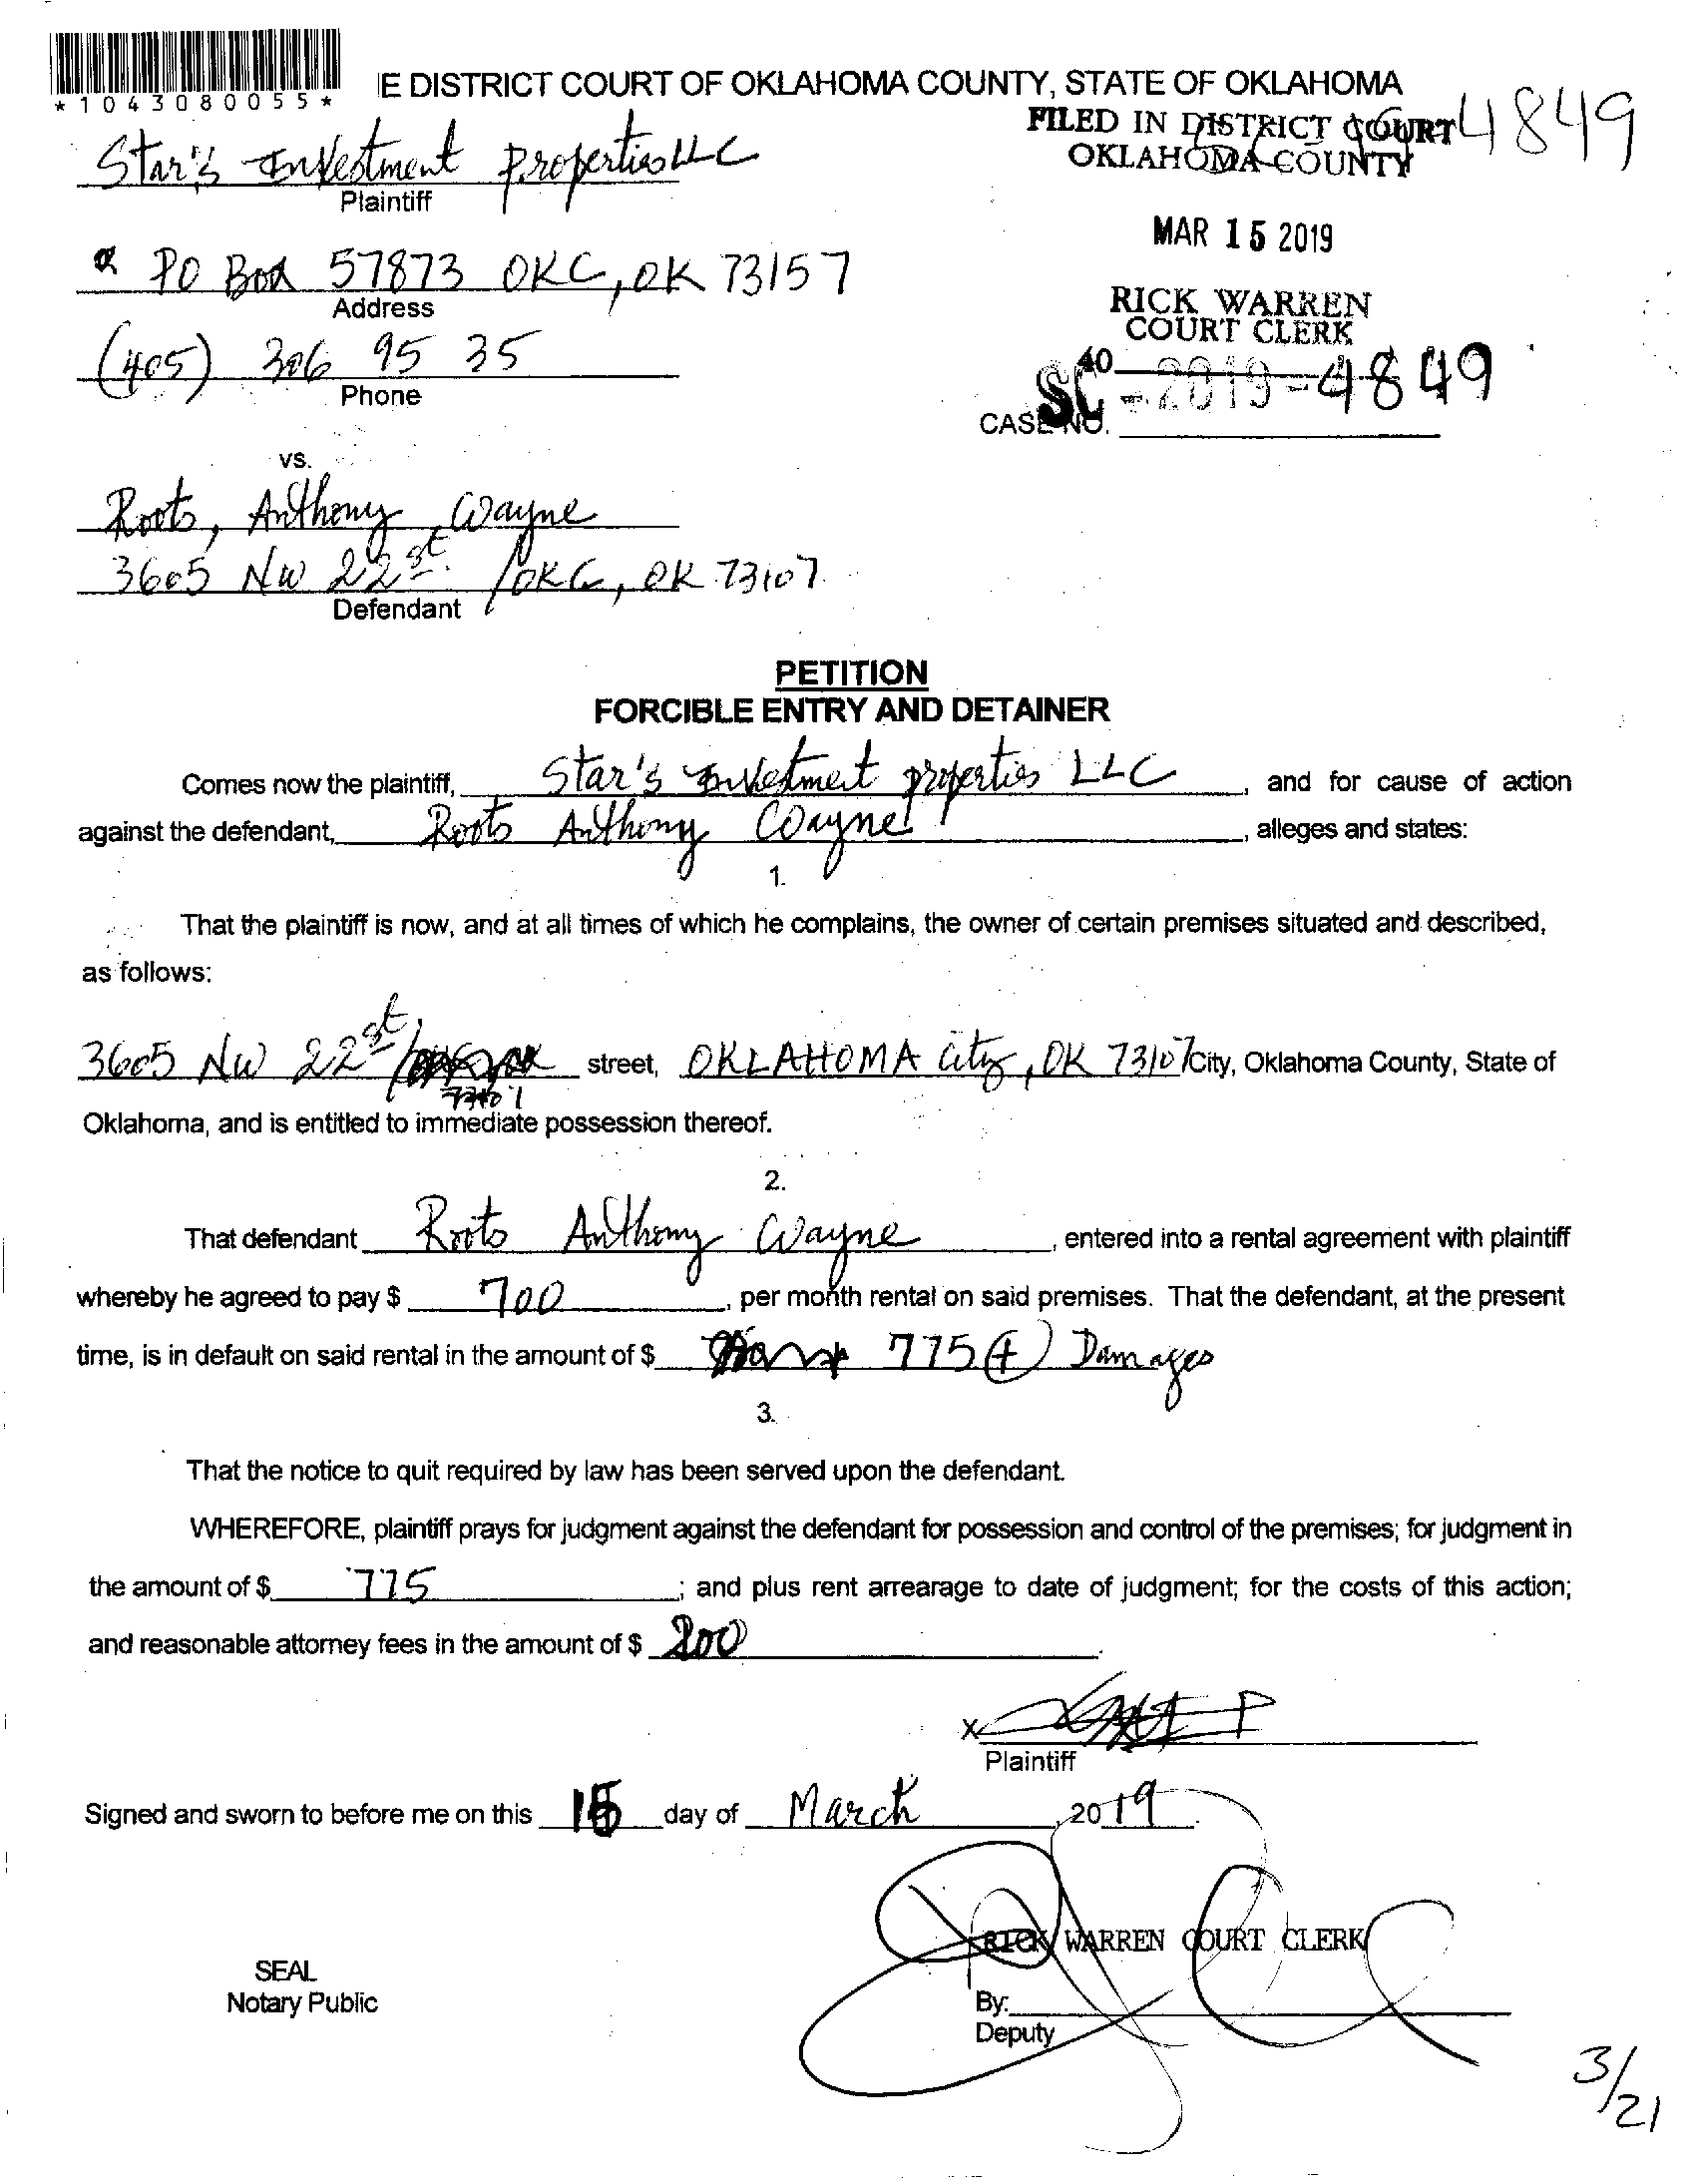 *1043080055*
E DISTRICT COURT OF OKLAHOMA COUNTY, STATE OF OKLAHOMA
FILED IN DISTRICT COURT
OKLAHOMA COUNTY
4849
Star's Investment Properties LLC
Plaintiff
MAR 15 2019
PO Box 57873 OKC, OK 73157
Address
RICK WARREN
COURT CLERK
(405) 306 95 35
Phone
40
SC-2019-4849
CASE NO.
vs.
Roots, Anthony, Wayne
3605 NW 22st. / OKC, OK 73107
Defendant
PETITION
FORCIBLE ENTRY AND DETAINER
Comes now the plaintiff, Star's Investment properties LLC, and for cause of action
against the defendant, Roots Anthony Wayne, alleges and states:
1.
That the plaintiff is now, and at all times of which he complains, the owner of certain premises situated and described,
as follows:
3605 NW 22st / street, OKLAHOMA City, OK 73107 City, Oklahoma County, State of
Oklahoma, and is entitled to immediate possession thereof.
2.
That defendant Roots Anthony Wayne, entered into a rental agreement with plaintiff
whereby he agreed to pay $ 700, per month rental on said premises. That the defendant, at the present
time, is in default on said rental in the amount of $ 775 (+) Damages
3.
That the notice to quit required by law has been served upon the defendant.
WHEREFORE, plaintiff prays for judgment against the defendant for possession and control of the premises; for judgment in
the amount of $ 775; and plus rent arrearage to date of judgment; for the costs of this action;
and reasonable attorney fees in the amount of $ 200.
X
Plaintiff
Signed and sworn to before me on this 15 day of March, 2019.
RICK WARREN COURT CLERK
SEAL
Notary Public
By:
Deputy
3/21